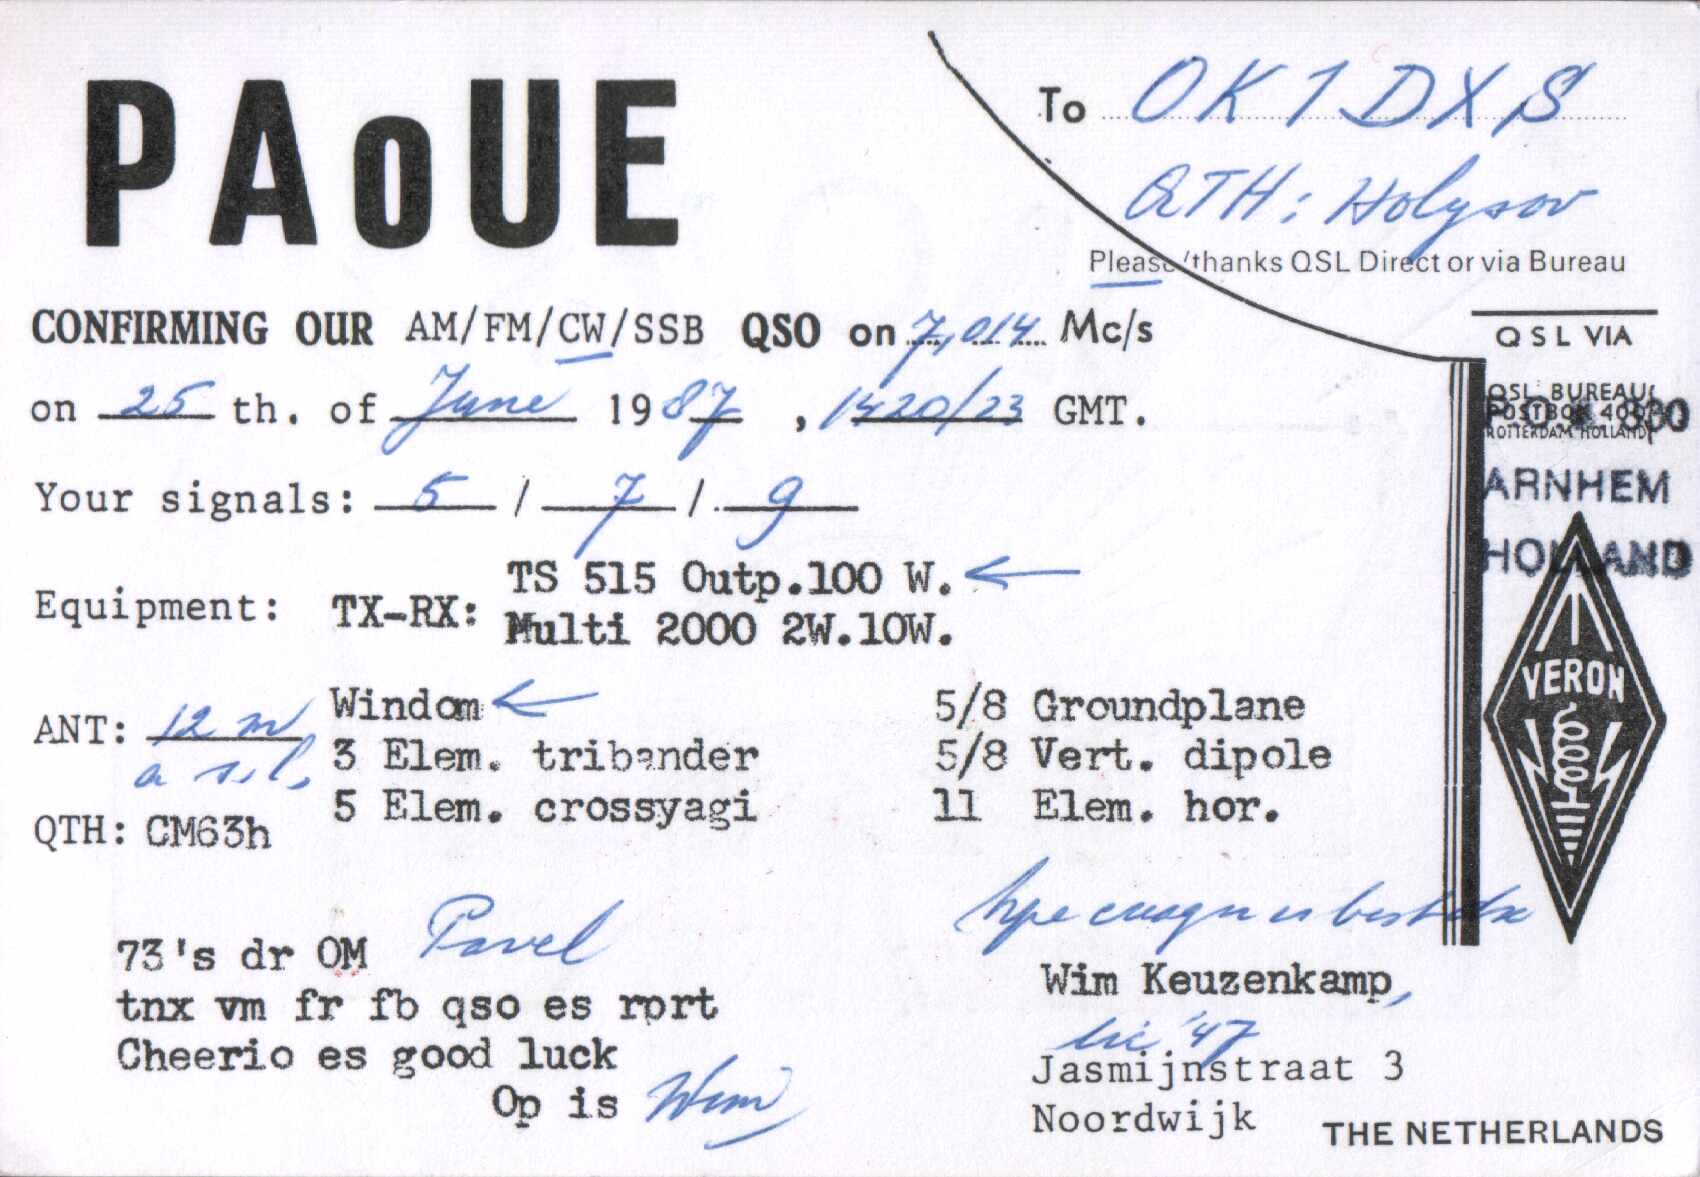 PAoUE
To OK1DXS
QTH: Holysov
Please/thanks QSL Direct or via Bureau
CONFIRMING OUR AM/FM/CW/SSB QSO on 7,014 Mc/s
on 25 th. of June 1987, 1420/23 GMT.
Your signals: 5 / 7 / 9
QSL VIA
QSL BUREAU
POSTBOX 400
ROTTERDAM HOLLAND
ARNHEM
HOLLAND
VERON
Equipment: TX-RX: TS 515 Outp.100 W.
Multi 2000 2W.10W.
ANT: 12 m
a s.l.
Windom
3 Elem. tribander
5 Elem. crossyagi
5/8 Groundplane
5/8 Vert. dipole
11 Elem. hor.
QTH: CM63h
73's dr OM Pavel
tnx vm fr fb qso es rprt
Cheerio es good luck
Op is Wim
hpe cuagn es best dx
Wim Keuzenkamp,
lic '47
Jasmijnstraat 3
Noordwijk
THE NETHERLANDS